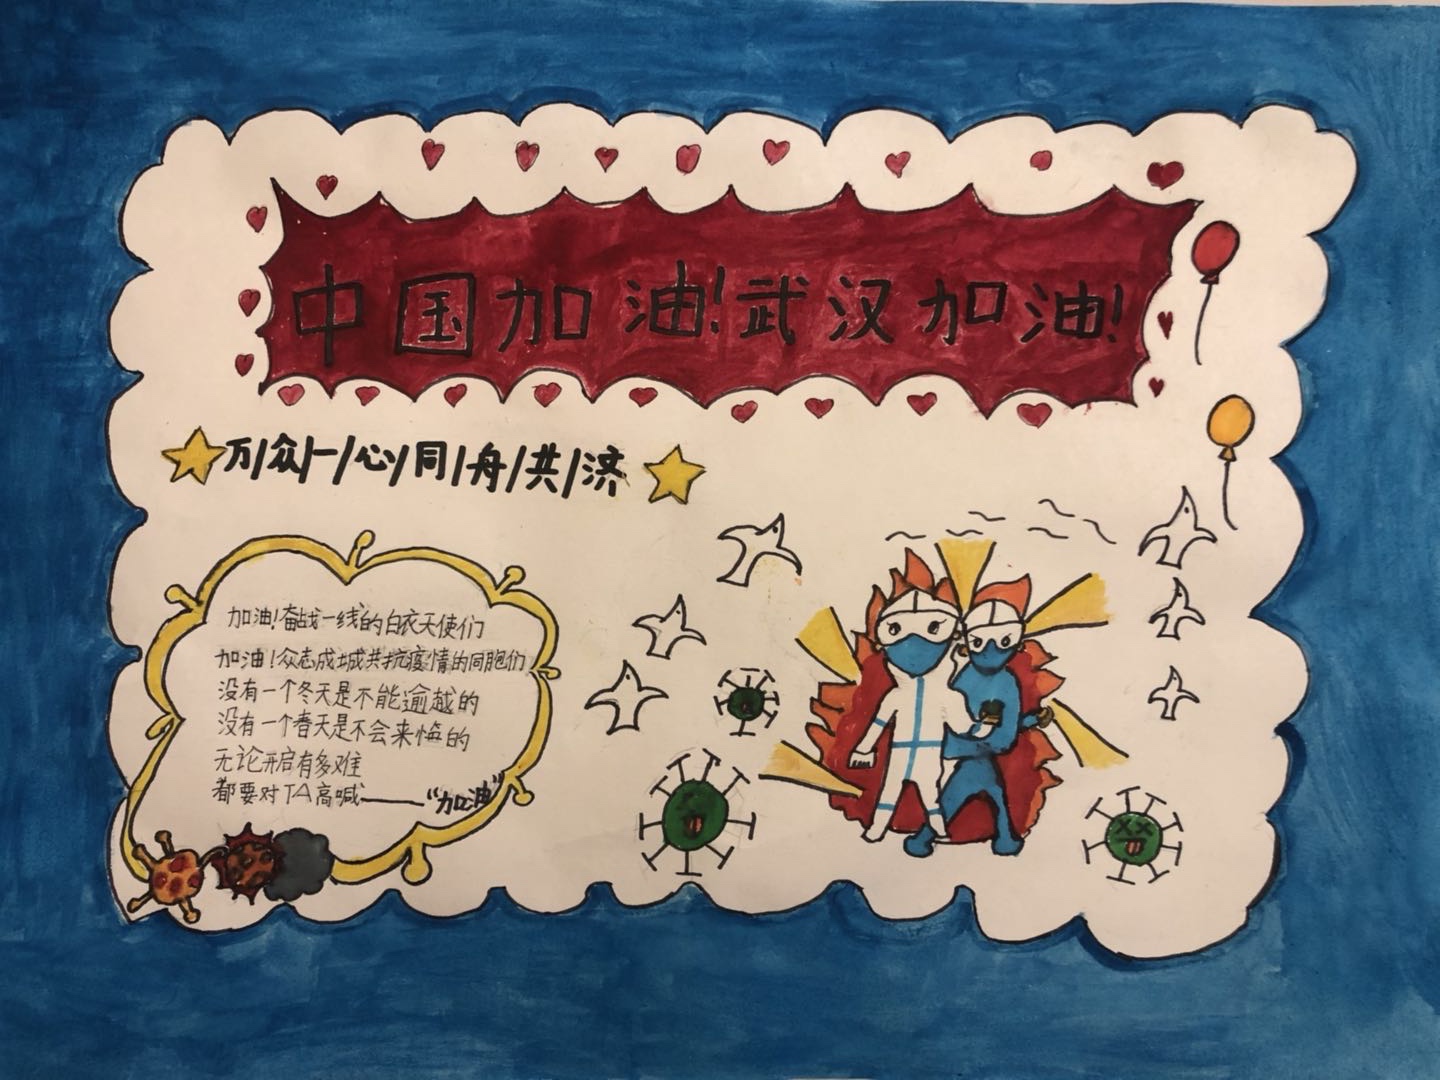 中国加油!武汉加油!
万/众/一/心/同/舟/共/济
加油!奋战一线的白衣天使们
加油!众志成城共抗疫情的同胞们
没有一个冬天是不能逾越的
没有一个春天是不会来临的
无论开启有多难
都要对TA高喊——“加油”